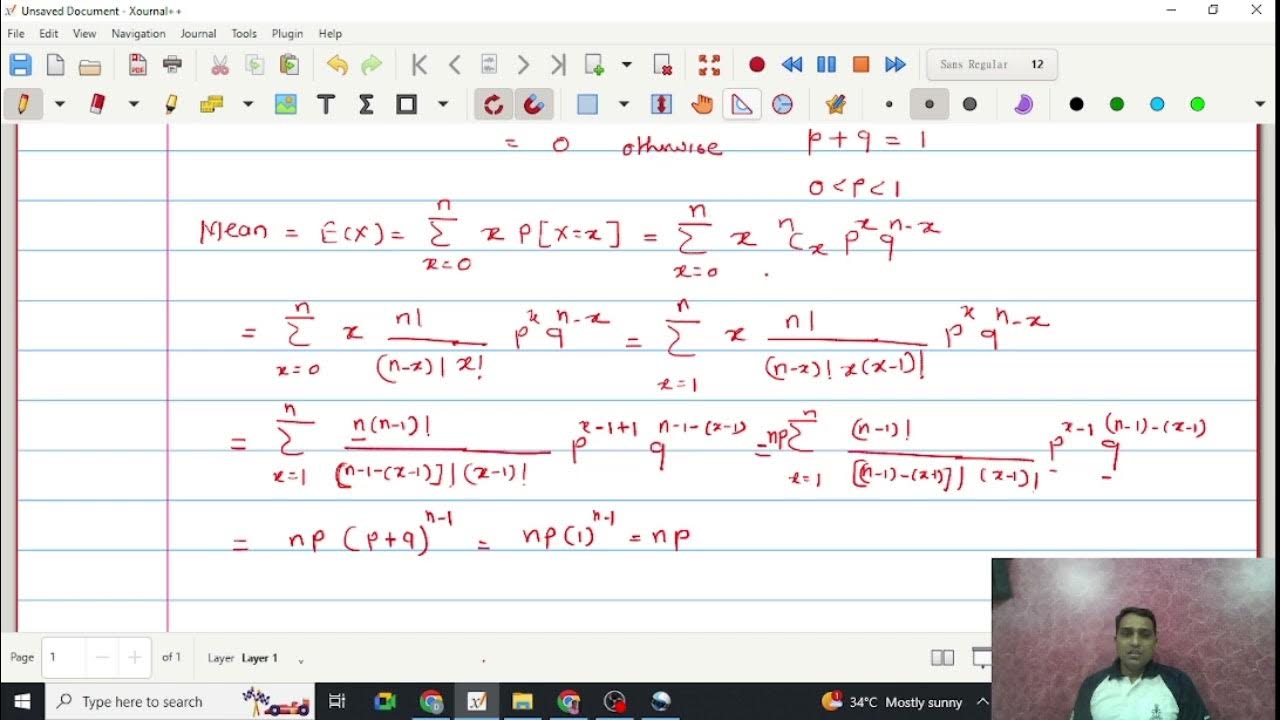 Unsaved Document - Xournal++
File Edit View Navigation Journal Tools Plugin Help
Sans Regular 12
= 0 otherwise p + q = 1
0 < p < 1
Mean = E(X) = \sum_{x=0}^{n} x P[X=x] = \sum_{x=0}^{n} x ^nC_x p^x q^{n-x}
= \sum_{x=0}^{n} x \frac{n!}{(n-x)! x!} p^x q^{n-x} = \sum_{x=1}^{n} x \frac{n!}{(n-x)! x(x-1)!} p^x q^{n-x}
= \sum_{x=1}^{n} \frac{n(n-1)!}{[n-1-(x-1)]! (x-1)!} p^{x-1+1} q^{n-1-(x-1)} = np \sum_{x=1}^{n} \frac{(n-1)!}{[(n-1)-(x-1)]! (x-1)!} p^{x-1} q^{(n-1)-(x-1)}
= np (p+q)^{n-1} = np(1)^{n-1} = np
Page 1 of 1 Layer Layer 1
Type here to search
1 34°C Mostly sunny